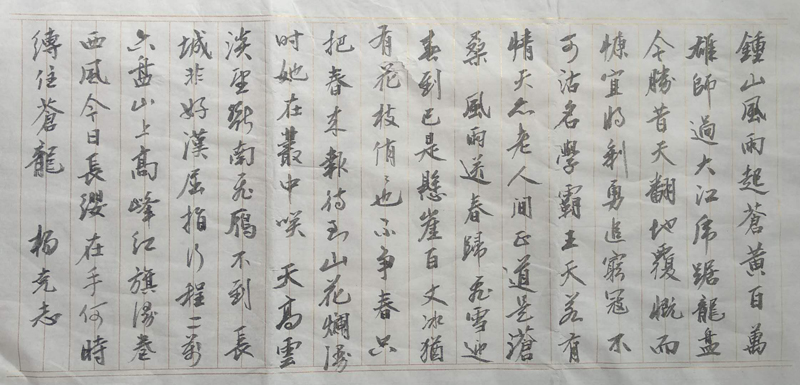 鍾山風雨起蒼黃百萬
雄師過大江虎踞龍盘
今勝昔天翻地覆慨而
慷宜将剩勇追窮寇不
可沽名學霸王天若有
情天亦老人间正道是滄
桑 風雨送春歸飛雪迎
春到已是懸崖百丈冰猶
有花枝俏〻也不争春只
把春来報待到山花爛漫
时她在叢中咲 天高雲
淡望断南飛雁不到長
城非好漢屈指行程二萬
六盘山上高峰红旗漫卷
西風今日長缨在手何時
縛住蒼龍 楊克志